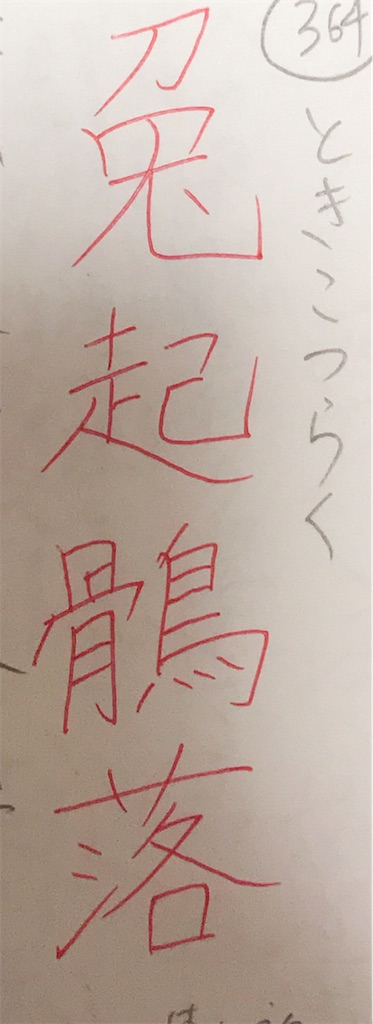 364
ときこつらく
兔起鶻落